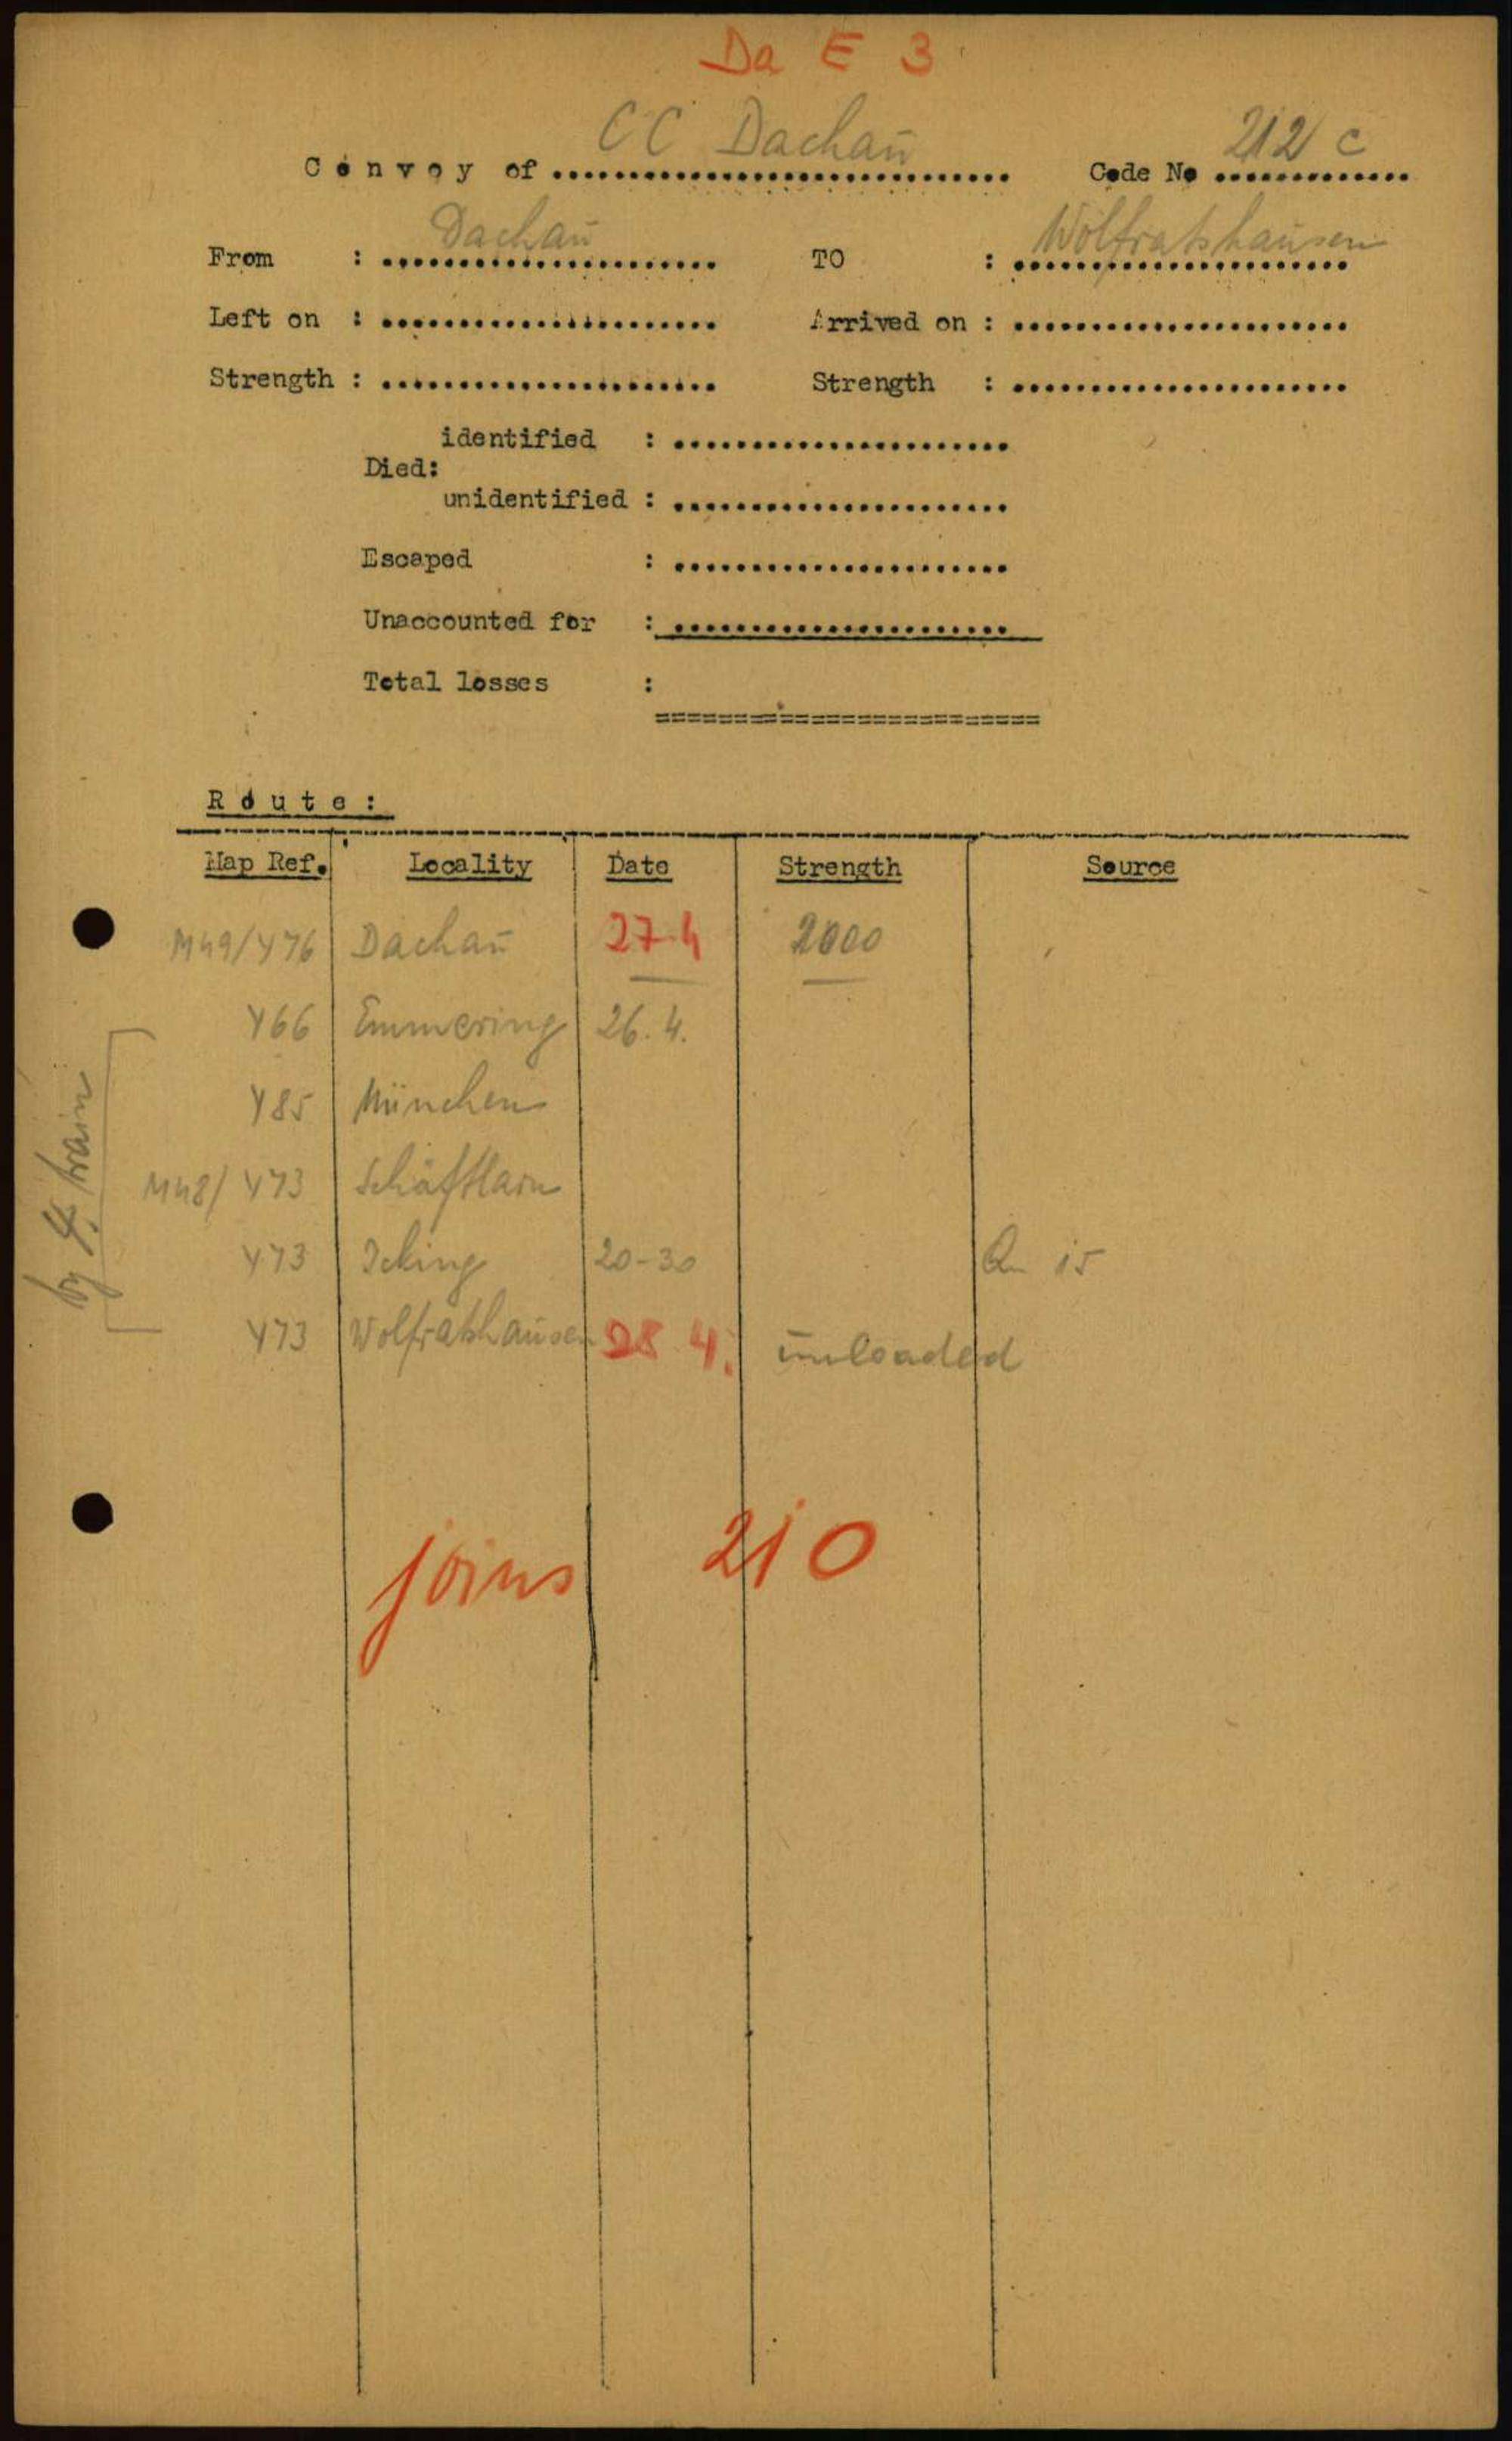 Da E 3
Convoy of CC Dachau Code No 212 c
From : Dachau TO : Wolfratshausen
Left on : Arrived on :
Strength : Strength :
identified :
Died:
unidentified :
Escaped :
Unaccounted for :
Total losses :
Route:
Map Ref. Locality Date Strength Source
M49/Y76 Dachau 27.4 2000
Y66 Emmering 26.4.
Y85 München
M48/Y73 Schäftlarn
Y73 Icking 20-30 15
Y73 Wolfratshausen 28.4. unloaded
by train
joins 210